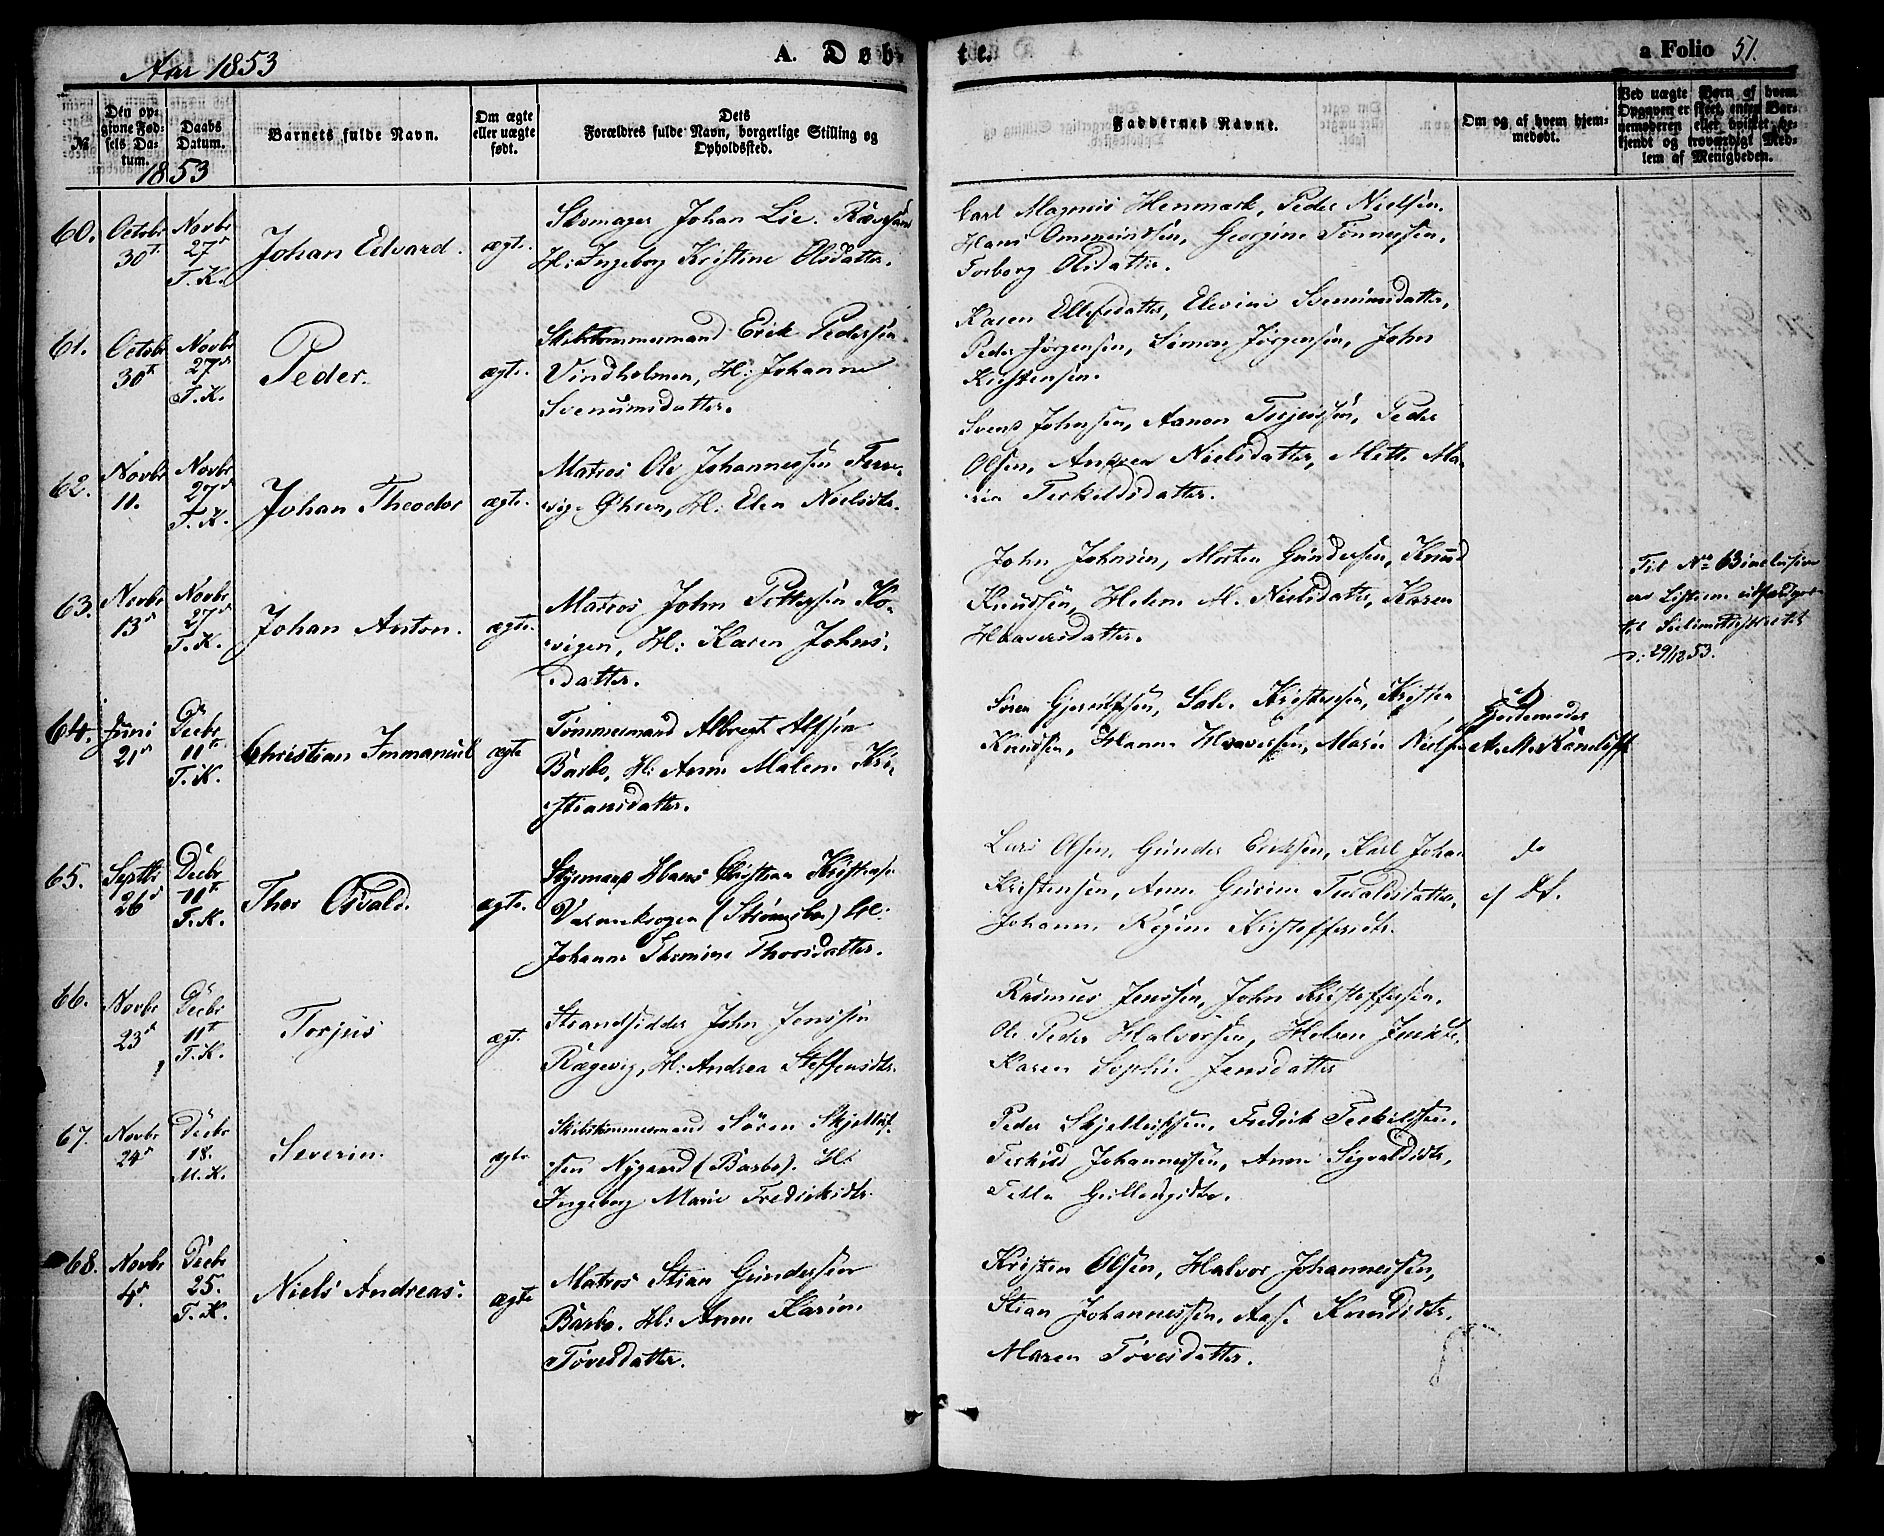 Aar 1853
A. Døb-
te.
a Folio 51.
№
Den op-
givne Fød-
sels Da-
tum.
Daabs
Datum.
Barnets fulde Navn.
Om ægte
eller uægte
født.
Dets
Forældres fulde Navn, borgerlige Stilling og
Opholdssted.
Faddernes Navne.
Om og af hvem hjem-
medøbt.
Ved uægte Børn af hvem
Opgaven er skeet, enten Bar-
nemoderen eller hvilket be-
kjendt og troværdigt Med-
lem af Menigheden.
1853
60.
Octobr
30te
Novbr
27de
T. K.
Johan Edvard.
ægte.
Skomager Johan Lie.
H: Ingeborg Kristine Olsdatter.
Carl Magnus Henmark, Peder Nielsen,
Hans Ommundsen, Georgine Tønnesen,
Torborg Olsdatter.
61.
Octobr
30te
Novbr
27de
T. K.
Peder.
ægte.
Skibstømmermand Erik Pedersen
Vindholmen, H: Johanne
Svenumsdatter.
Karen Ellefsdatter, Elevine Svenumsdatter,
Peder Jørgensen, Simon Jørgensen, John
Kristensen.
62.
Novbr
11.
Novbr
27de
T. K.
Johan Theodor
ægte.
Matros Ole Johannessen
H: Elen Nielsdtr.
Svend Johnsen, Aanon Terjessen, Peder
Olsen, Andrea Nielsdatter, Mette Ma-
rie Terkildsdatter.
63.
Novbr
13de
Novbr
27de
T. K.
Johan Anton.
ægte.
Matros John Pettersen Ko-
vigen, H: Karen Johns-
datter.
John Johnsen, Morten Gundersen, Knud
Knudsen, Helene M. Nielsdatter, Karen
Haaversdatter.
Til No 63 inclusive
er Listerne
til
d: 29/12 53.
64.
Juni
21de
Decbr
11te
T. K.
Christian Immanuel
ægte
Tømmermand Albregt Alfsen
Barbo, H: Anne Malene Kri-
stiansdatter.
Kristensen, Kristen
Knudsen, Hanne Haaversen, Marie Nielsen
af
Gjordemoder
A. M.
65.
Septbr
26de
Decbr
11te
T. K.
Thor Osvald.
ægte.
Styrmand Hans Christian Kristens.
(Strømsbo) H:
Johanne Thomine Thorsdatter.
Lars Olsen, Gunder Eriksen, Karl Johan
Kristensen, Anne Gurine
Johanne Regine Kristoffersdtr.
do
af do.
66.
Novbr
23de
Decbr
11te
T. K.
Torjus
ægt.
Strandsidder John Jenssen
Rægevig, H: Andrea Steffensdtr.
Rasmus Jenssen, John Kristoffersen,
Ole Peder Halvorsen, Helene
Karen Sophie Jensdatter
67.
Novbr
24de
Decbr
18.
M. K.
Severin.
ægte
Skibstømmermand Søren Skjelluf-
sen Nygaard (Barbo). H:
Ingeborg Marie Fredriksdtr.
Peder Skjellufsen, Fredrik Terkildsen,
Terkild Johannessen, Anne Sigvaldsdtr,
68.
Novbr
4de
Decbr
25.
T. K.
Niels Andreas.
ægte
Matros Stian Gundersen
Barbo. H: Anne Karine
Tovesdatter.
Kristen Olsen, Halvor Johannessen,
Stian Johannessen, Aase Knudsdtr.
Maren Tovesdatter.